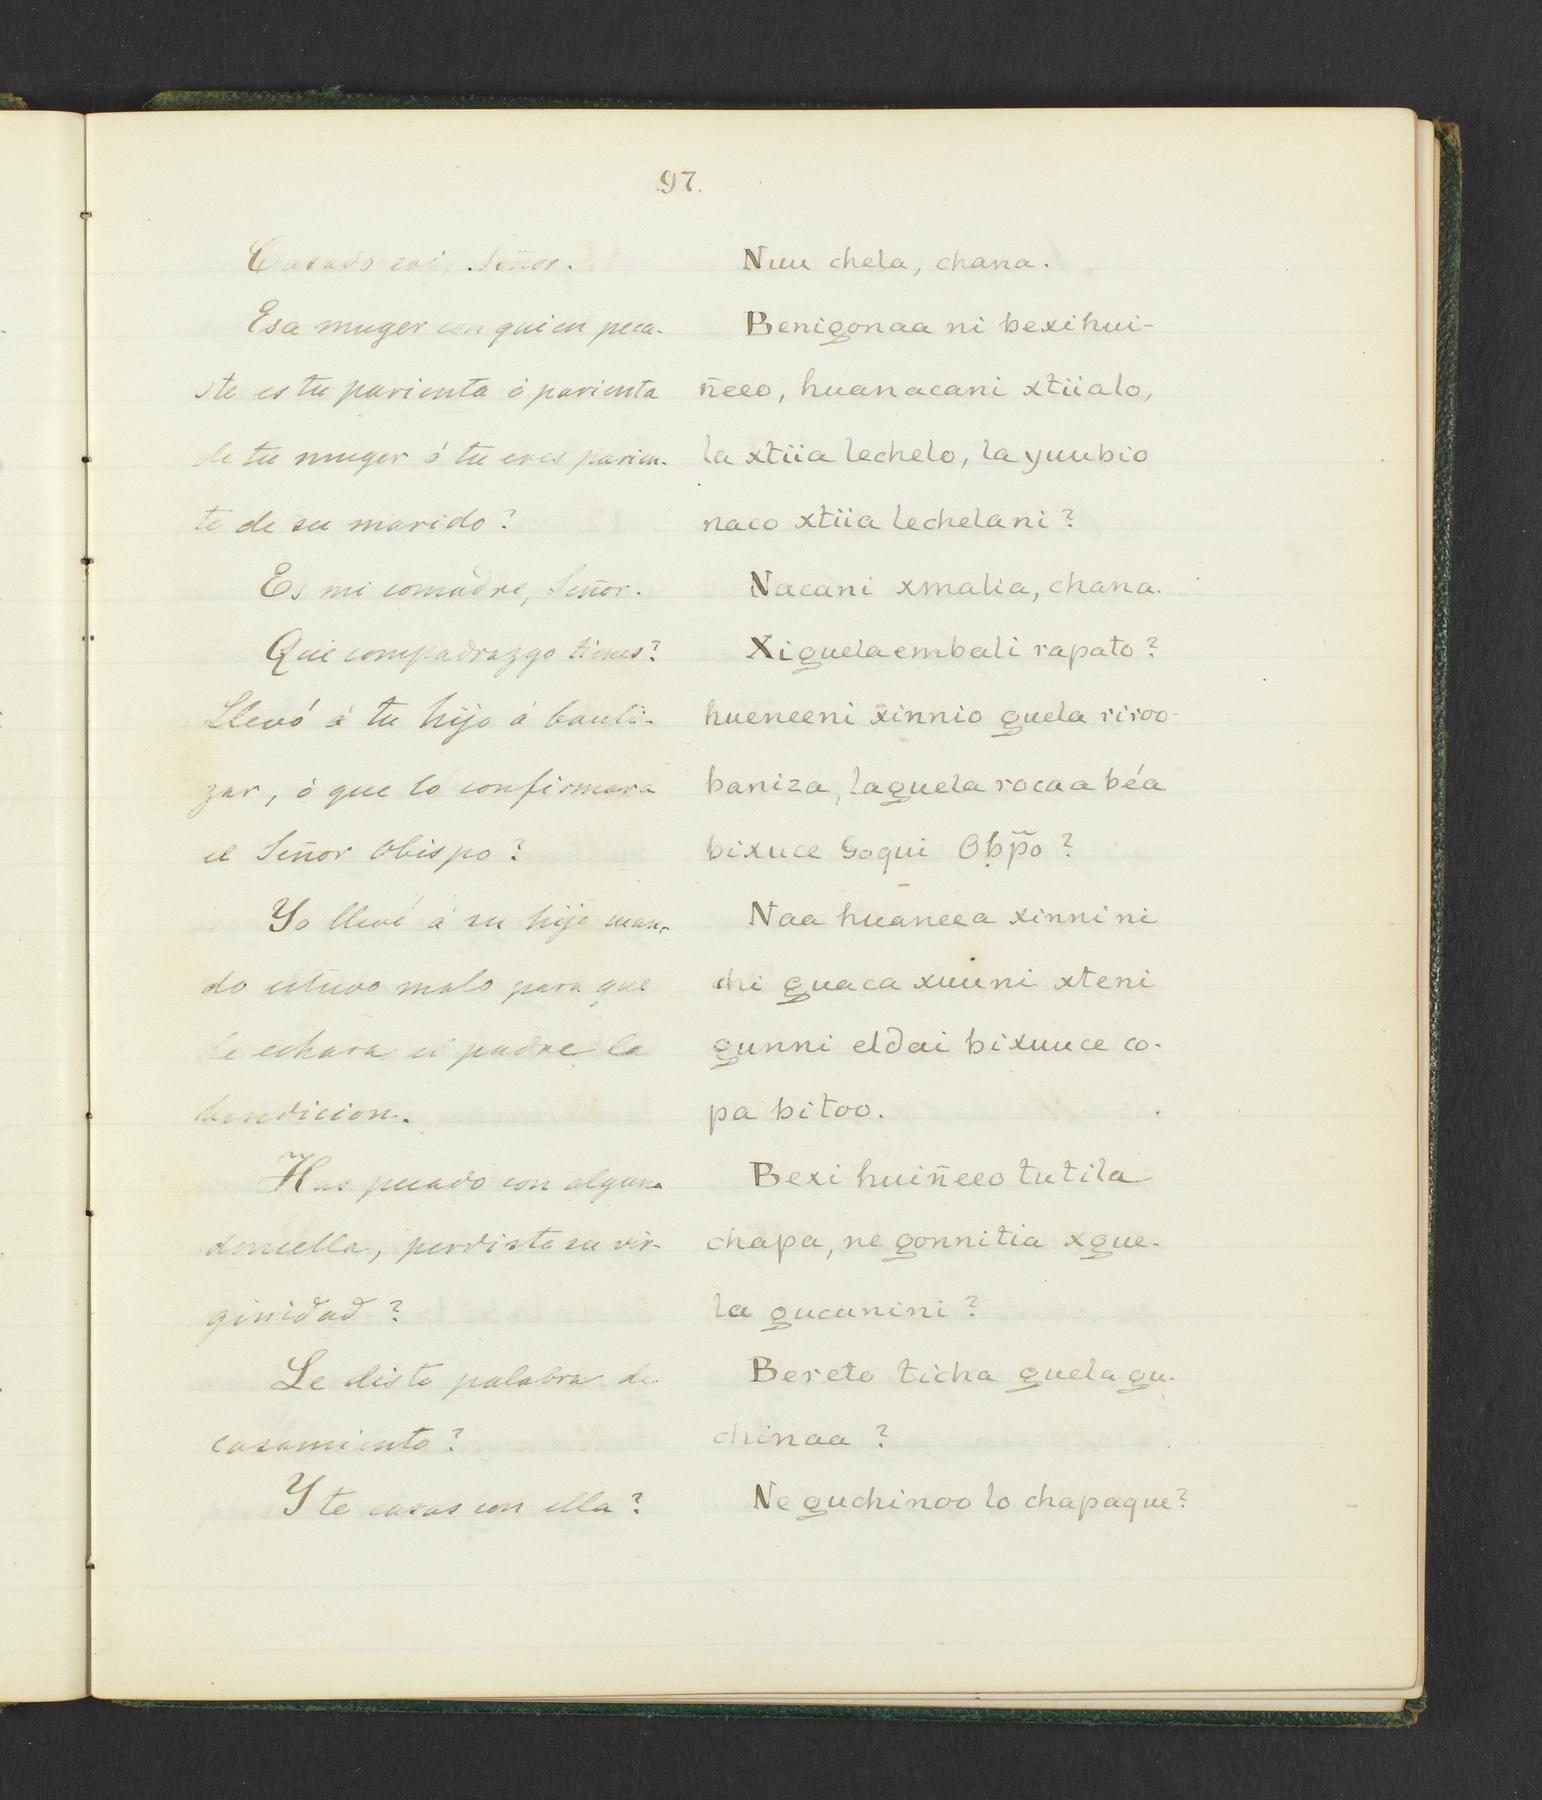 97.
Casado soi, Señor.
Esa muger con quien peca-
ste es tu parienta ó parienta
de tu muger ó tu eres parien-
te de su marido?
Es mi comadre, Señor.
Qué compadrazgo tienes?
Llevó á tu hijo á bauti-
zar, ó que lo confirmara
el Señor Obispo?
Yo llevé á su hijo cuan-
do estuvo malo para que
le echara el padre la
bendicion.
Has pecado con alguna
doncella, perdiste su vir-
ginidad?
Le diste palabra de
casamiento?
Y te casas con ella?
Nuu chela, chana.
Benigonaa ni bexihui-
ñeeo, huanacani xtiialo,
la xtiia lechelo, la yuubio
naco xtiia lechelani?
Nacani xmalia, chana.
Xiguelaembali rapato?
hueneeni xinnio guela riroo-
baniza, laguela rocaa béa
bixuce Goqui Obp̃o?
Naa huaneea xinni ni
chi guaca xuuni xteni
gunni eldai bixuuce co-
pa bitoo.
Bexi huiñeeo tutila
chapa, ne gonnitia xgue-
la gucunini?
Bereto ticha guela gu-
chinaa?
Ne guchinoo lo chapaque?